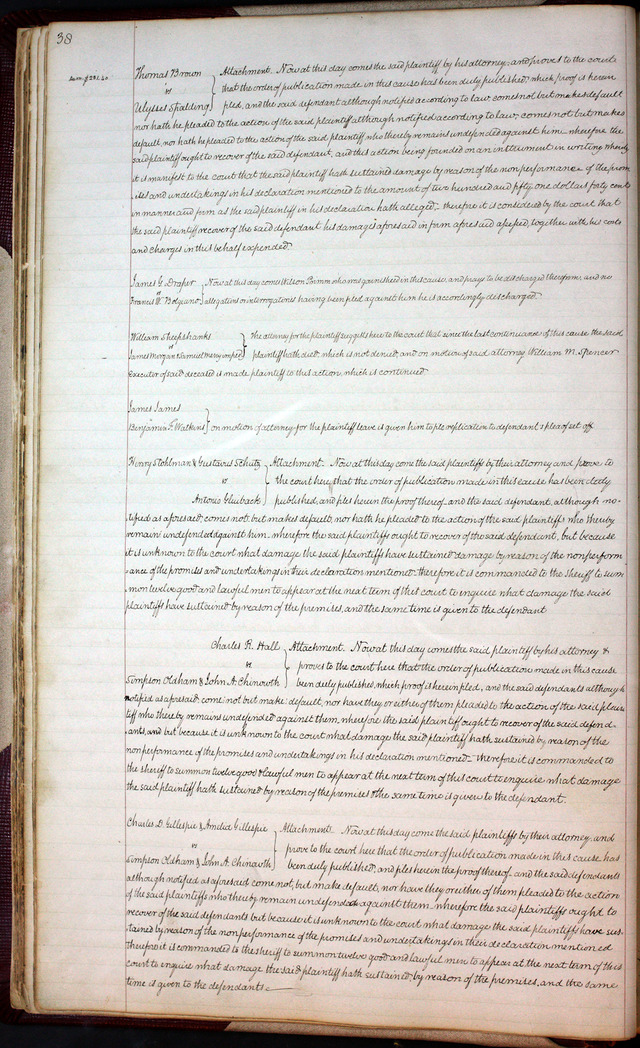 38
Thomas Brown Attachment. Now at this day comes the said plaintiff by his attorney, and proves to the court
vs that the order of publication made in this cause has been duly published, which proof is herein
Ulysses Spalding pled, and the said defendant although notified according to law comes not but makes default
nor hath he pleaded to the action of the said plaintiff although notified according to law, comes not but makes
default, nor hath he pleaded to the action of the said plaintiff who thereby remains undefended against him. wherefore the
said plaintiff ought to recover of the said defendant, and this action being founded on an instrument in writing whereby
it is manifest to the court that the said plaintiff hath sustained damage by reason of the nonperformance of the prom
ises and undertakings in his declaration mentioned to the amount of two hundred and fifty one dollars forty cents
in manner and form as the said plaintiff in his declaration hath alleged_ therefore it is considered by the court that
the said plaintiff recover of the said defendant his damages aforesaid in form aforesaid assessed, together with his costs
and charges in this behalf expended.
James G. Draper Now at this day comes Wilson Primm who was garnisheed in this cause, and prays to be discharged therefrom, and no
vs
Francis allegations or interrogatories having been pled against him he is accordingly discharged.
William Sheepshanks The attorney for the plaintiff suggests here to the court that since the last continuance of this cause the said
vs
James Morgan & Samuel Merry impled plaintiff hath died, which is not denied, and on motion of said attorney William M. Spencer
executor of said deceased is made plaintiff to this action, which is continued
James James
Benjamin F. Watkins on motion of attorney for the plaintiff leave is given him to ple replication to defendant's plea of set off
Henry Stohlman & Gustavus Schutz Attachment. Now at this day come the said plaintiffs by their attorney and prove to
vs the court here, that the order of publication made in this cause has been duly
Antonio published, and ples herein the proof thereof. and the said defendant, although no-
tified as aforesaid, comes not, but makes default, nor hath he pleaded to the action of the said plaintiffs who thereby
remain undefended against him. wherefore the said plaintiffs ought to recover of the said defendant, but because
it is unknown to the court what damage the said plaintiffs have sustained damage by reason of the nonperform
ance of the promises and undertakings in their declaration mentioned_ therefore it is commanded to the sheriff to sum
mon twelve good and lawful men to appear at the next term of this court to enquire what damage the said
plaintiffs have sustained by reason of the premises, and the same time is given to the defendant
Charles R. Hall Attachment. Now at this day comes the said plaintiff by his attorney &
vs proves to the court here that the order of publication made in this cause
Simpson Oldham & John A. Chinowth been duly published, which proof is herein pled, and the said defendants although
notified as aforesaid come not but make default, nor have they or either of them pleaded to the action of the said plain
tiff who thereby remains undefended against them, wherefore the said plaintiff ought to recover of the said defend
ants, and but because it is unknown to the court what damage the said plaintiff hath sustained by reason of the
nonperformance of the promises and undertakings in his declaration mentioned_ therefore it is commanded to
the sheriff to summon twelve good & lawful men to appear at the next term of this court to enquire what damage
the said plaintiff hath sustained by reason of the premises & the same time is given to the defendant.
Charles D. Gillespie & Amelia Gillespie Attachment. Now at this day come the said plaintiffs by their attorney, and
vs prove to the court here that the order of publication made in this cause has
Simpson Oldham & John A. Chinowth been duly published, and ples herein the proof thereof. and the said defendants
although notified as aforesaid come not, but make default, nor have they or either of them pleaded to the action
of the said plaintiffs who thereby remain undefended against them. wherefore the said plaintiffs ought to
recover of the said defendants but because it is unknown to the court what damage the said plaintiffs have sus
tained by reason of the nonperformance of the promises and undertakings in their declaration mentioned
therefore it is commanded to the sheriff to summon twelve good and lawful men to appear at the next term of this
court to enquire what damage the said plaintiff hath sustained by reason of the premises, and the same
time is given to the defendants.